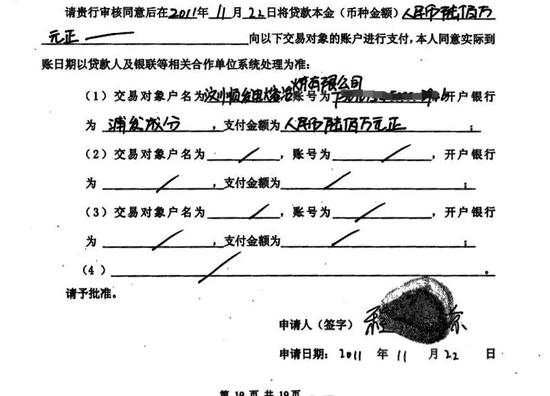 请贵行审核同意后在2011年11月22日将贷款本金（币种金额）人民币陆佰万
元正 向以下交易对象的账户进行支付，本人同意实际到
账日期以贷款人及银联等相关合作单位系统处理为准：
（1）交易对象户名为汶川顺发电熔冶炼有限公司账号为 开户银行
为 浦发成分，支付金额为人民币陆佰万元正；
（2）交易对象户名为 / ，账号为 / ，开户银行
为 / ，支付金额为 / ；
（3）交易对象户名为 / ，账号为 / ，开户银行
为 / ，支付金额为 / ；
（4） /
请予批准。
申请人（签字）
申请日期：2011 年 11 月 22 日
第 19 页 共 19 页